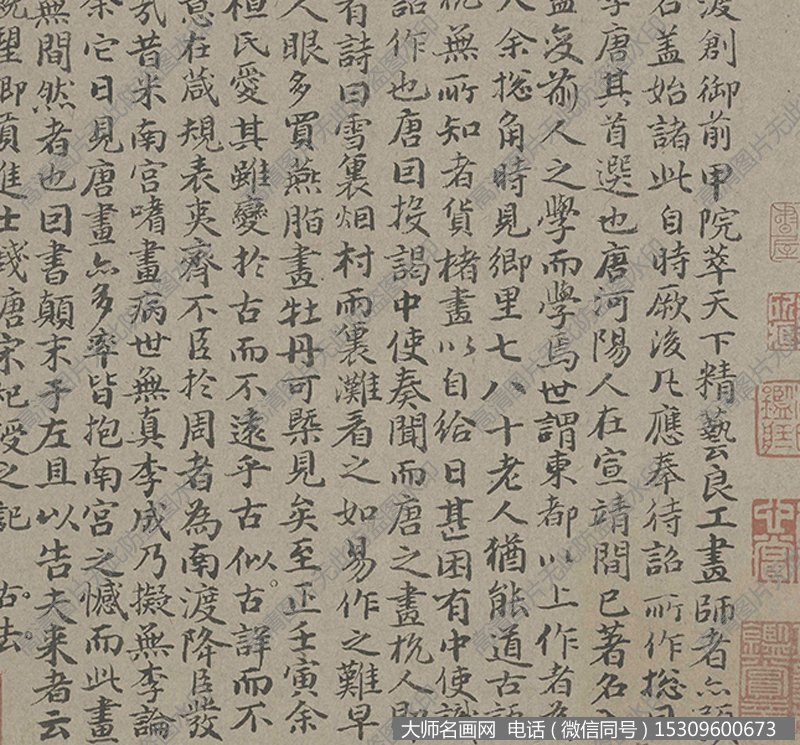 渡創御前甲院萃天下精藝良工畫師者亦
名蓋始諸此自時厥後凡應奉待詔所作揔目
李唐其首選也唐河陽人在宣靖間已著名
益變前人之學而學焉世謂東都以上作者為
人余揔角時見鄉里七八十老人猶能道古語
杭無所知者貨楮畫以自給日甚困有中使識
詔作也唐因投謁中使奏聞而唐之畫杭人即
有詩曰雪裏烟村雨裏灘看之如易作之難早
人眼多買燕脂畫牡丹可槩見矣至正壬寅余
桓氏愛其雖變於古而不遠乎古似古詳而不
意在箴規表夷齊不臣於周者為南渡降臣發
氣昔米南宮嗜畫病世無真李成乃擬無李論
余它日見唐畫亦多率皆抱南宮之憾而此畫
無間然者也因書顛末于左且以告夫来者云
貢進士錢唐宋杞授之記 古法
大师名画网 电话（微信同号）15309600673